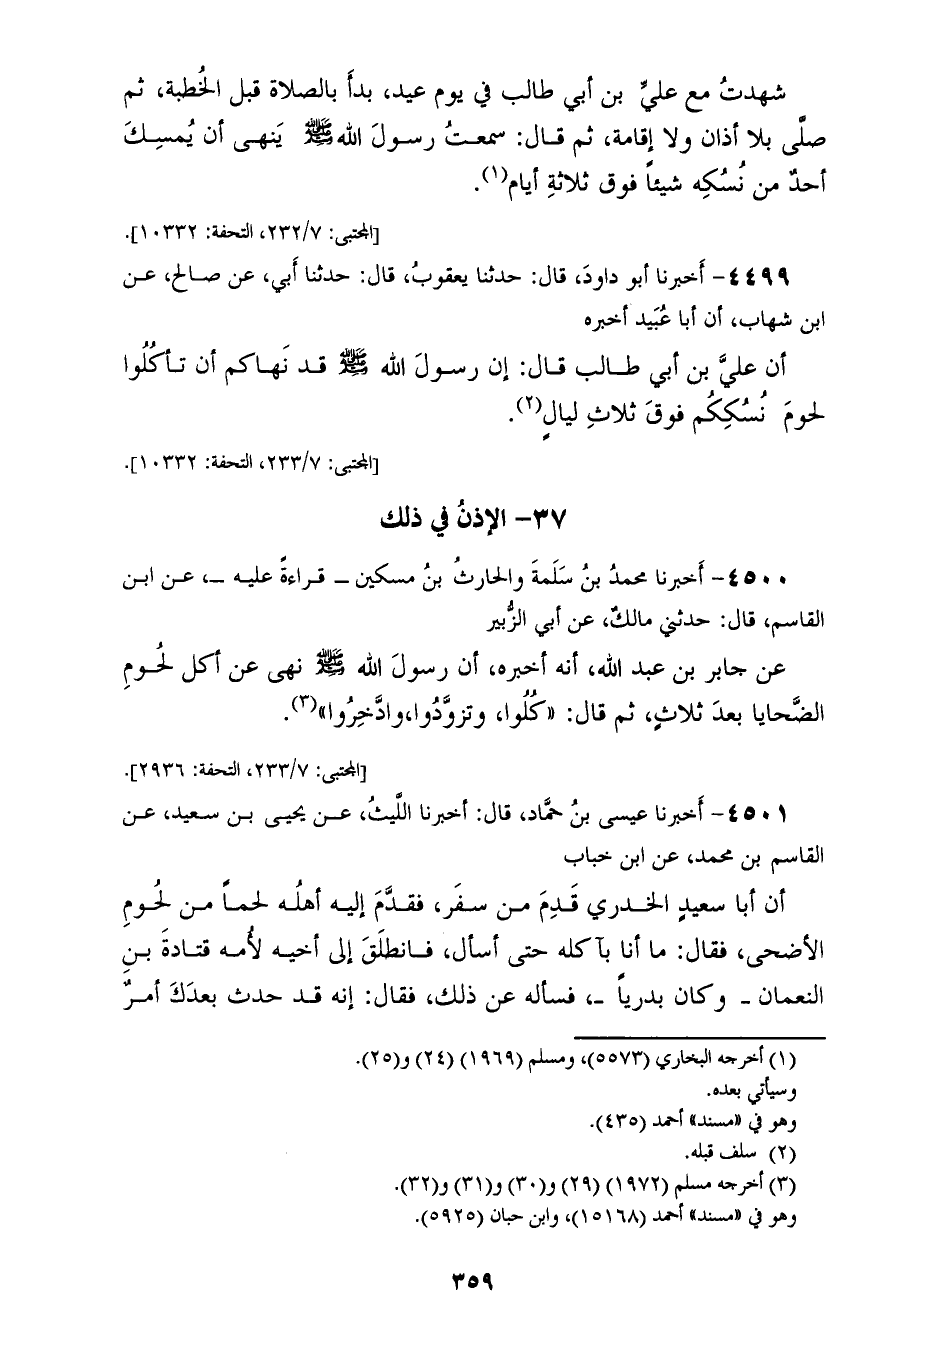 شهدتُ مع عليِّ بن أبي طالب في يوم عيد، بدأَ بالصلاة قبل الخُطبة، ثم
صلَّى بلا أذان ولا إقامة، ثم قال: سمعتُ رسولَ الله ﷺ يَنهى أن يُمسِكَ
أحدٌ من نُسُكِه شيئاً فوق ثلاثةِ أيام(١).
[المجتبى: ٢٣٢/٧، التحفة: ١٠٣٣٢].
٤٤٩٩- أَخبرنا أبو داودَ، قال: حدثنا يعقوبُ، قال: حدثنا أَبي، عن صالح، عن
ابن شهاب، أن أبا عُبَيد أخبره
أن عليَّ بن أبي طالب قال: إن رسولَ الله ﷺ قد نَهاكم أن تأكُلُوا
لحومَ نُسُكِكُم فوقَ ثلاثِ ليالٍ(٢).
[المجتبى: ٢٣٣/٧، التحفة: ١٠٣٣٢].
٣٧- الإذنُ في ذلك
٤٥٠٠- أَخبرنا محمدُ بنُ سَلَمةَ والحارثُ بنُ مسكين - قراءةً عليه -، عن ابن
القاسم، قال: حدثني مالكٌ، عن أبي الزُّبير
عن جابر بن عبد الله، أنه أخبره، أن رسولَ الله ﷺ نهى عن أكل لحُومِ
الضَّحايا بعدَ ثلاثٍ، ثم قال: «كُلُوا، وتزوَّدُوا،وادَّخِرُوا»(٣).
[المجتبى: ٢٣٣/٧، التحفة: ٢٩٣٦].
٤٥٠١- أَخبرنا عيسى بنُ حمَّاد، قال: أخبرنا اللَّيثُ، عن يحيى بن سعيد، عن
القاسم بن محمد، عن ابن خباب
أن أبا سعيدٍ الخدري قَدِمَ من سفَر، فقدَّمَ إليه أهلُه لحماً من لحُومِ
الأضحى، فقال: ما أنا بآكله حتى أسأل، فانطلَقَ إلى أخيه لأُمه قتادةَ بنِ
النعمان - وكان بدرياً -، فسأله عن ذلك، فقال: إنه قد حدث بعدَكَ أمرٌ
(١) أخرجه البخاري (٥٥٧٣)، ومسلم (١٩٦٩) (٢٤) و(٢٥).
وسيأتي بعده.
وهو في «مسند» أحمد (٤٣٥).
(٢) سلف قبله.
(٣) أخرجه مسلم (١٩٧٢) (٢٩) و(٣٠) و(٣١) و(٣٢).
وهو في «مسند» أحمد (١٥١٦٨)، وابن حبان (٥٩٢٥).
٣٥٩